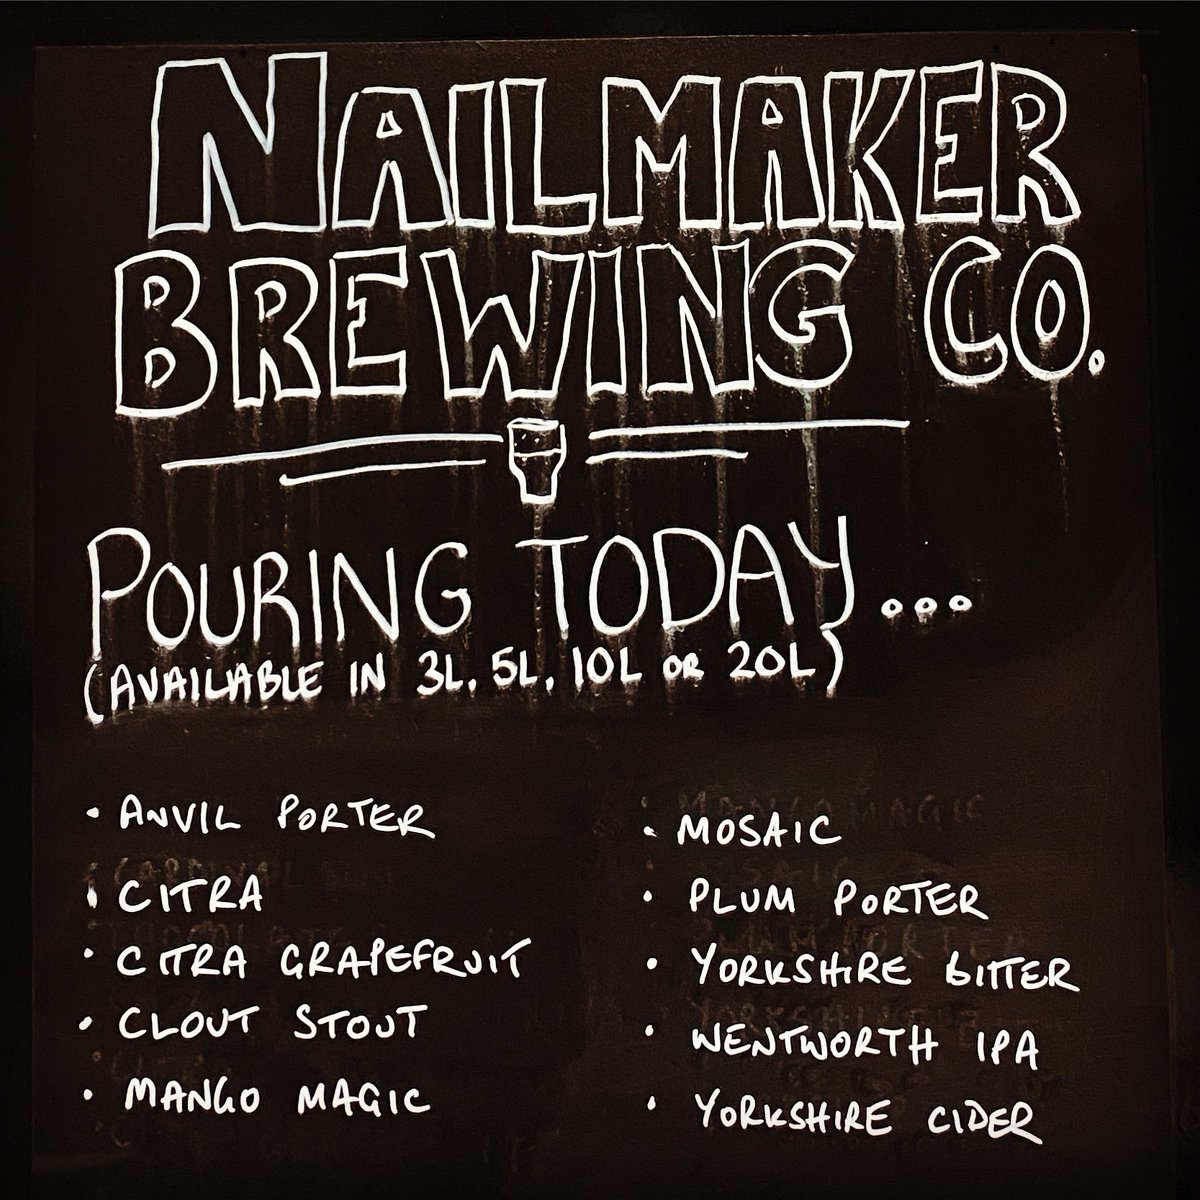 NAILMAKER
BREWING CO.
POURING TODAY...
(AVAILABLE IN 3L, 5L, 10L OR 20L)
• ANVIL PORTER
• CITRA
• CITRA GRAPEFRUIT
• CLOUT STOUT
• MANGO MAGIC
• MOSAIC
• PLUM PORTER
• YORKSHIRE BITTER
• WENTWORTH IPA
• YORKSHIRE CIDER